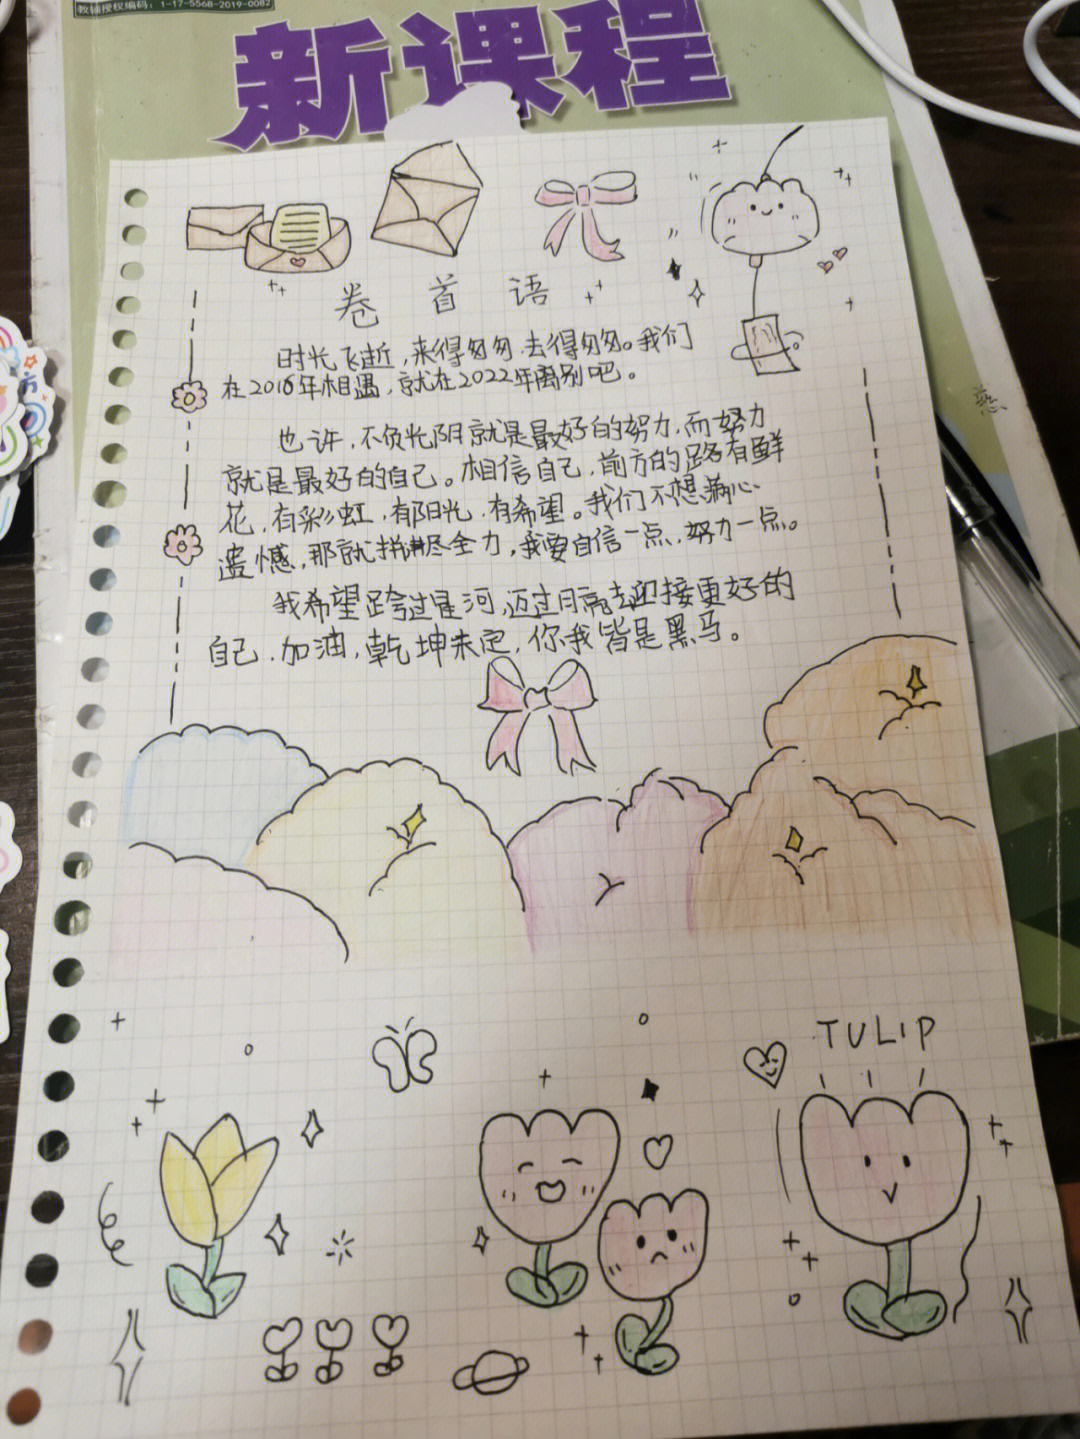 教辅授权编码：1-17-5568-2019-0082
新课程
卷首语
时光飞逝，来得匆匆，去得匆匆。我们
在2016年相遇，就在2022年离别吧。
也许，不负光阴就是最好的努力，而努力
就是最好的自己。相信自己，前方的路有鲜
花，有彩虹，有阳光，有希望。我们不想满心
遗憾，那就拼尽全力，我要自信一点，努力一点。
我希望跨过星河，迈过月亮去迎接更好的
自己，加油，乾坤未定，你我皆是黑马。
TULIP